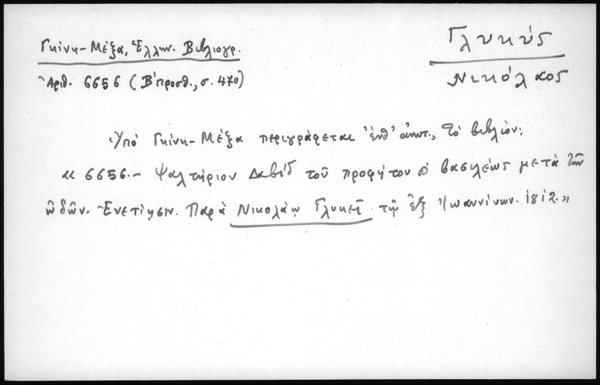 Γκίνη-Μέξα, Ἑλλην. Βιβλιογρ.
Γλυκύς
Νικόλαος
Ἀριθ. 6656 (Β'προσθ., σ. 470)
Ὑπό Γκίνη-Μέξα περιγράφεται ἐνθ' ἀνωτ., τό βιβλίον:
« 6656.- Ψαλτήριον Δαβίδ τοῦ προφήτου & βασιλέως μετά τῶν
ᾠδῶν. Ἐνετίῃσιν. Παρά Νικολάῳ Γλυκεῖ τῷ ἐξ Ἰωαννίνων. 1812.»